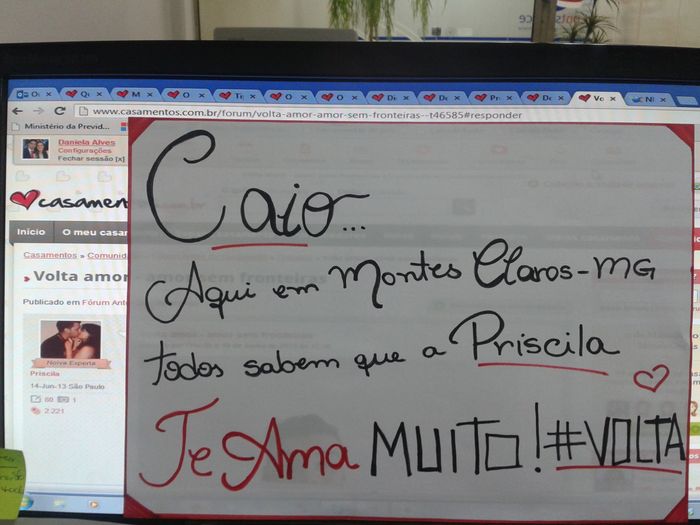 www.casamentos.com.br/forum/volta-amor-amor-sem-fronteiras--t46585#responder
Ministério da Previd...
Daniela Alves
Configurações
Fechar sessão [x]
casament
Início O meu casar
Casamentos » Comunid
Volta amor - amor sem fronteiras
Publicado em Fórum Ant
Noiva Experta
Priscila
14-Jun-13 São Paulo
60 1
2.221
Caio...
Aqui em Montes Claros-MG
todos sabem que a Priscila
Te Ama MUITO! #VOLTA